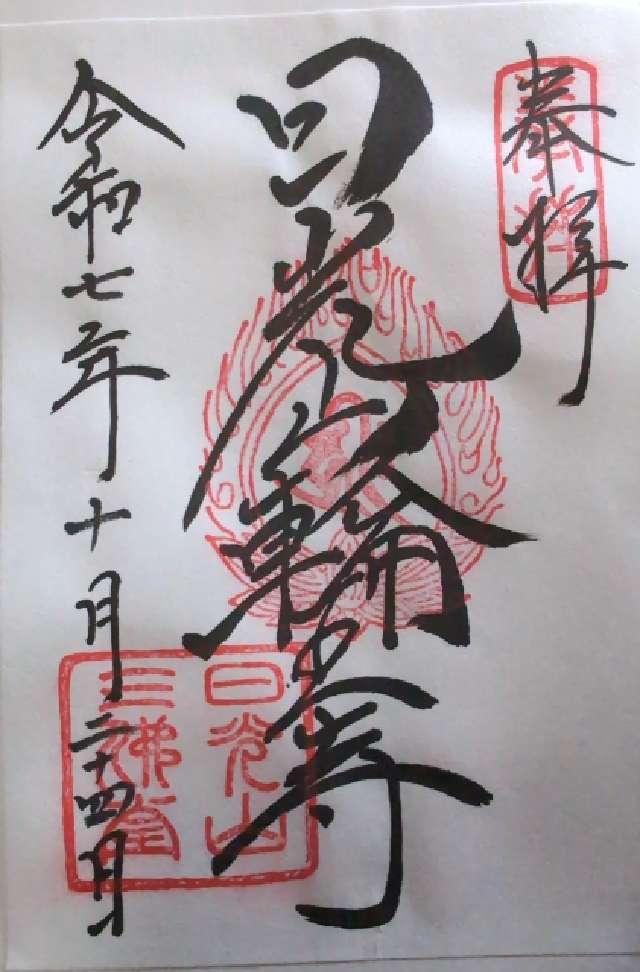 奉拝
奉拝
日光山輪王寺
日光山
三佛堂
令和七年十月二十四日